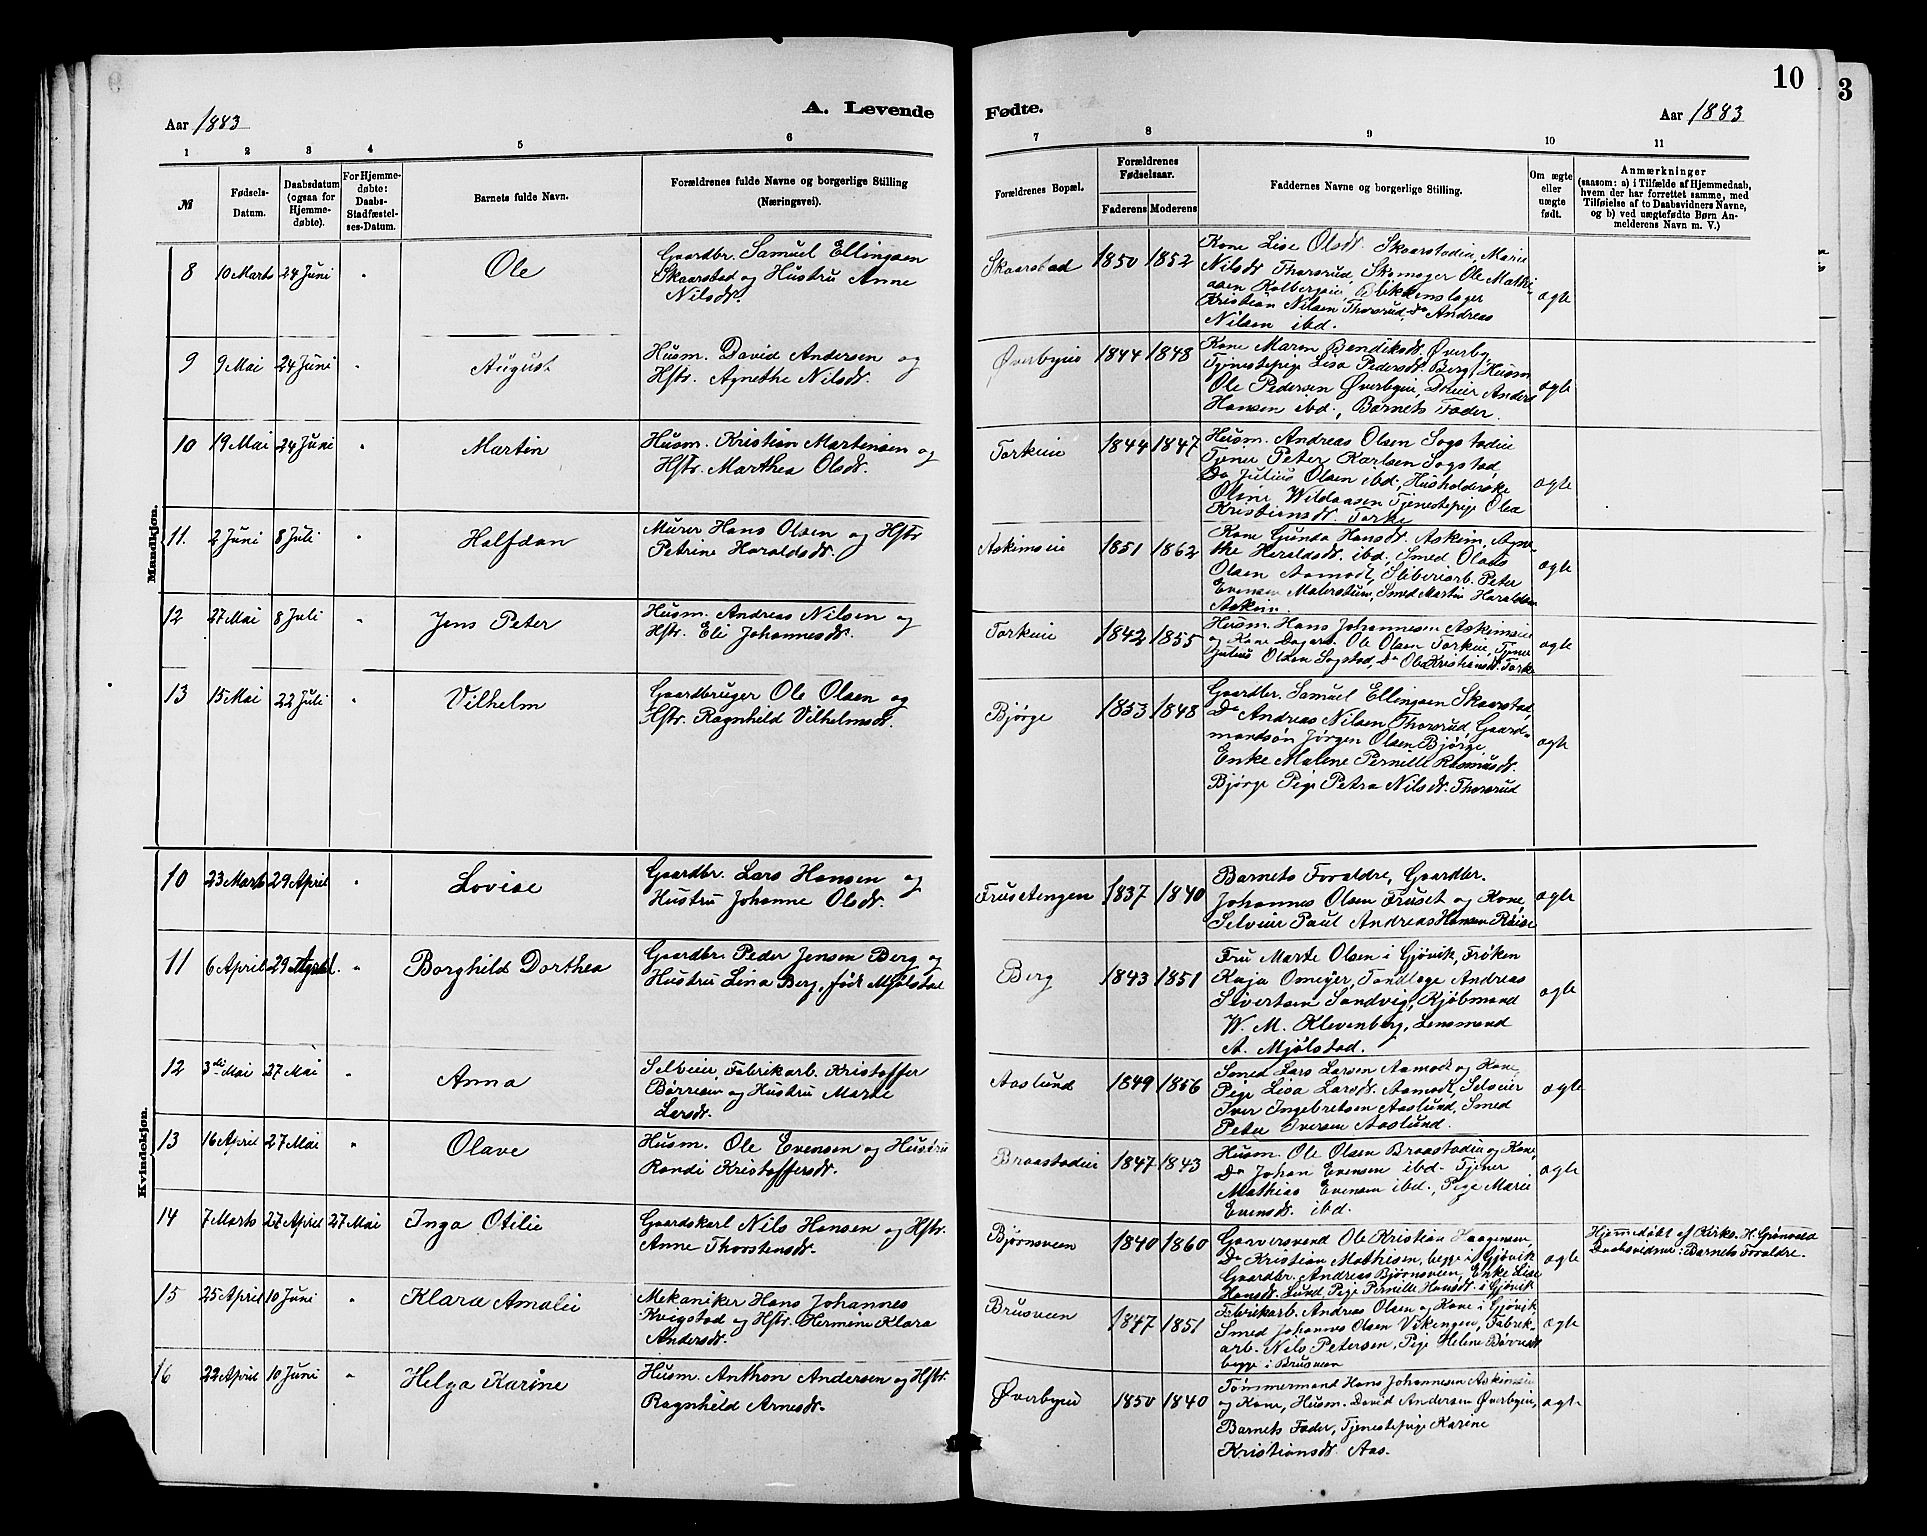 10
3
A. Levende Fødte.
Aar 1883
Aar 1883
1 2 3 4 5 6 7 8 9 10 11
№
Fødsels-
Datum.
Daabsdatum
(ogsaa for
Hjemme-
døbte).
For Hjemme-
døbte:
Daabs-
Stadfæstel-
ses-Datum.
Barnets fulde Navn.
Forældrenes fulde Navne og borgerlige Stilling
(Næringsvei).
Forældrenes Bopæl.
Forældrenes
Fødselsaar.
Faderens Moderens
Faddernes Navne og borgerlige Stilling.
Om ægte
eller
uægte
født.
Anmærkninger
(saasom: a) i Tilfælde af Hjemmedaab,
hvem der har forrettet samme, med
Tilføielse af to Daabsvidners Navne,
og b) ved uægtefødte Børn An-
melderens Navn m. V.)
Mandkjøn.
8 10 Marts 24 Juni " Ole
Gaardbr. Samuel Ellingsen
Skaarstad og Hustru Anne
Nilsdt.
Skaarstad 1850 1852
Kone Lise Olsdt. Skaarstadeie, Marie
Nilsdt Thorsrud, Skomager Ole Mathi-
asen Kolbergeie, Blikkenslager
Kristian Nilsen Thorsrud, Do Andreas
Nilsen ibd.
ægte
9 9 Mai 24 Juni " August
Husm. David Andersen og
Hstr. Agnethe Nilsdt.
Øverbyeie 1844 1848
Kone Maren Bendiksdt. Øverby,
Tjenestepige Lisa Pedersdt. Berg, Husm
Ole Pedersen Øverbyeie, Do eier Anders
Hansen ibd., Barnets Fader.
ægte
10 19 Mai 24 Juni " Martin
Husm. Kristian Martinsen og
Hstr. Marthea Olsdt.
Torkeie 1844 1847
Husm. Andreas Olsen Sogstadeie
Tjener Peter Karlsen Sogstad,
Do Julius Olsen ibd., Husholderske
Oline Wildaasen Tjenestepige Olea
Kristiansdt. Torke
ægte
11. 2 Juni 8 Juli " Halfdan
Murer Hans Olsen og Hstr
Petrine Haraldsdt.
Askimseie 1851 1862
Kone Gunda Hansdt. Askim, Agne-
the Heraldsdt. ibd, Smed Olaus
Olsen Aamodt, Sliberiarb. Peter
Evensen Malerstuen, Smed Martin Haraldsen
Askim.
ægte
12 27 Mai 8 Juli " Jens Peter
Husm. Andreas Nilsen og
Hstr. Eli Johannesdt.
Torkeie 1842 1855
Husm. Hans Johannesen Askimseie
og Kone, Dagarb. Ole Olsen Torkeie, Tjener
Julius Olsen Sogstad, Do Olea Kristiansdt. Torke
ægte
13 15 Mai 22 Juli " Vilhelm
Gaardbruger Ole Olsen og
Hstr. Ragnhild Vilhelmsdt.
Bjørge 1853 1848
Gaardbr. Samuel Ellingsen Skaarstad,
Do Andreas Nilsen Thorsrud Gaard-
mandsøn Jørgen Olsen Bjørge,
Enke Malene Pernille Rasmusdt.
Bjørge Pige Petra Nilsdt. Thorsrud
ægte
Kvindekjøn.
10 23 Marts 29 April " Lovise
Gaardbr. Lars Hansen og
Hustru Johanne Olsdt.
Frusetengen 1837 1840
Barnets Forældre, Gaardbr.
Johannes Olsen Fruset og Kone,
Selveier Paul Andreas Hansen Roise
ægte
11 6 April 29 April. " Borghild Dorthea
Gaardbr. Peder Jensen Berg og
Hustru Lina Berg, født Mjølstad
Berg 1843 1851
Fru Marte Olsen i Gjøvik, Frøken
Kaja Omeyer, Tandlæge Andreas
Sivertsen Sandvig, Kjøbmand
W. M. Klevenberg, Lensmand
A. Mjølstad.
ægte
12 3die Mai 27 Mai " Anna
Selveier, Fabrikarb. Kristoffer
Børresen og Hustru Marte
Larsdt.
Aaslund 1849 1856
Smed Lars Larsen Aamodt og Kone,
Pige Lisa Larsdt. Aamodt, Selveier
Iver Ingebretsen Aaslund, Smed
Peter Iversen Aaslund.
ægte
13 16 April 27 Mai " Olave
Husm. Ole Evensen og Hustru
Randi Kristoffersdt.
Braastadeie 1847 1843
Husm. Ole Olsen Braastadeie og Kone,
Do Johan Evensen ibd. Tjener
Mathias Evensen ibd., Pige Marie
Evensdt. ibd.
ægte
14 7 Marts 27 April 27 Mai Inga Otilie
Gaardskarl Nils Hansen og Hstr.
Anne Thorstensdt.
Bjørnsveen 1840 1860
Garversvend Ole Kristian Haagensen,
Do Kristian Mathisen, begge i Gjøvik
Gaardbr. Andreas Bjørnsveen, Enke Lise
Hansdt. Lund, Pige Pernille Hansdt. i Gjøvik
ægte
Hjemmedøbt af Kirks. H. Grønvold
Daabsvidner: Barnets Forældre.
15 25 April 10 Juni " Klara Amalie
Mekaniker Hans Johannes
Kvigstad og Hstr. Hermine Klara
Andersdt.
Brusveen 1847 1851
Fabrikarb. Andreas Olsen og Kone i Gjøvik
Smed Johannes Olsen Vikengen, Fabrik-
arb. Nils Petersen, Pige Helene Børresdt
begge i Brusveen
ægte
16 22 April 10 Juni " Helga Karine
Husm. Anthon Andersen og Hstr.
Ragnhild Arnesdt.
Øverbyeie 1850 1840
Tømmermand Hans Johannesen Askimseie
og Kone, Husm. David Andersen Øverbyeie,
Barnets Fader, Tjenestepige Karine
Kristiansdt. Aas.
ægte